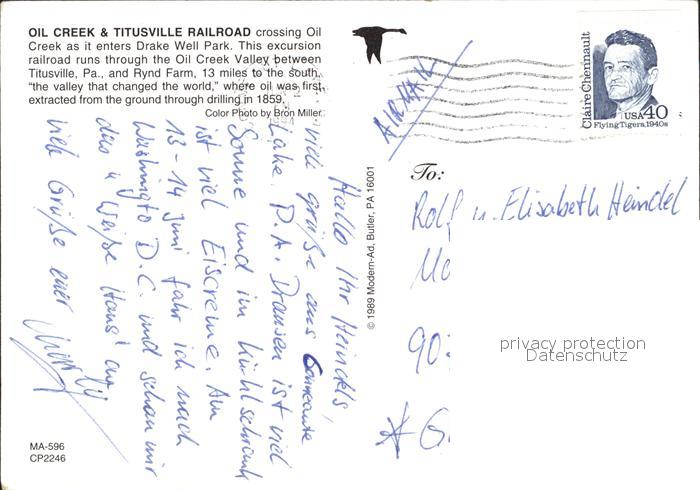 OIL CREEK & TITUSVILLE RAILROAD crossing Oil
Creek as it enters Drake Well Park. This excursion
railroad runs through the Oil Creek Valley between
Titusville, Pa., and Rynd Farm, 13 miles to the south,
"the valley that changed the world," where oil was first
extracted from the ground through drilling in 1859.
Color Photo by Bron Miller
Hallo Ihr Heindels,
viele grüße aus Conneaute
Lake. P.A. Draußen ist viel
Sonne und im Kühlschrank
ist viel Eiscreme. Am
13-14 Juni fahr ich nach
Washington D.C. und schau mir
das "Weiße Haus" an
viele Grüße euer
MA-596
CP2246
© 1989 Modern-Ad, Butler, PA 16001
AIRMAIL
Claire Chennault
USA 40
Flying Tigers, 1940s
To:
Rolf u. Elisabeth Heindel
90
privacy protection
Datenschutz